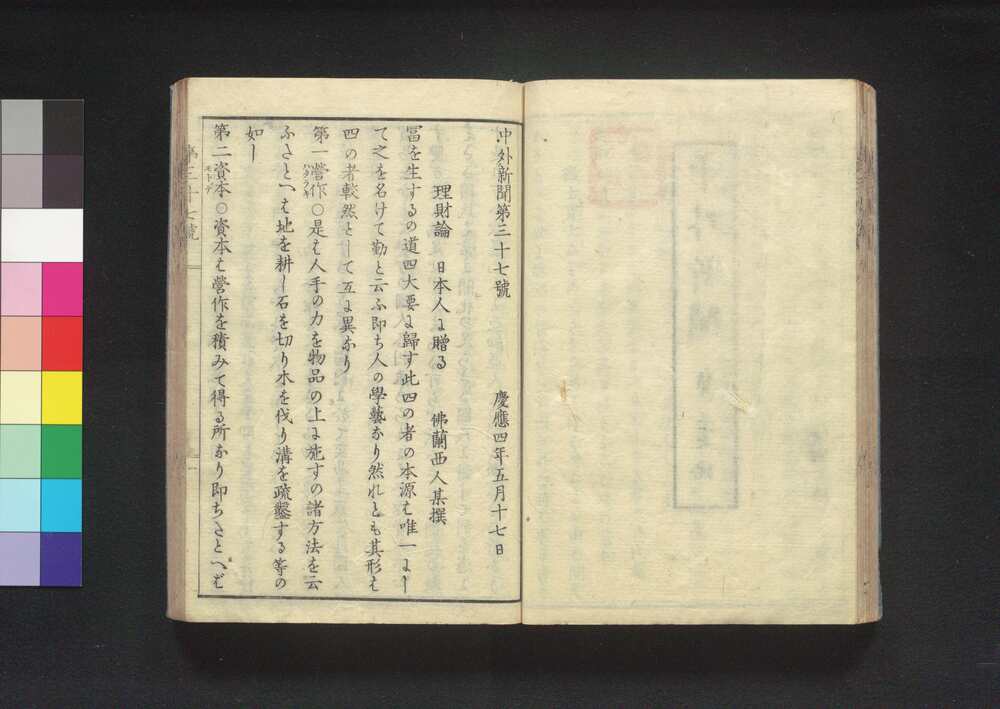 中外新聞第三十七號 慶應四年五月十七日
理財論 日本人に贈る 佛蘭西人某撰
富を生するの道四大要に歸す此四の者の本源は唯一にし
て之を名けて勤と云ふ即ち人の學藝なり然れとも其形は
四の者較然として互に異なり
第一營作○是は人手の力を物品の上に施すの諸方法を云
ふたとへは地を耕し石を切り木を伐り溝を疏鑿する等の
如し
第二資本モトデ○資本は營作を積みて得る所なり即ちたとへば
第三十七號